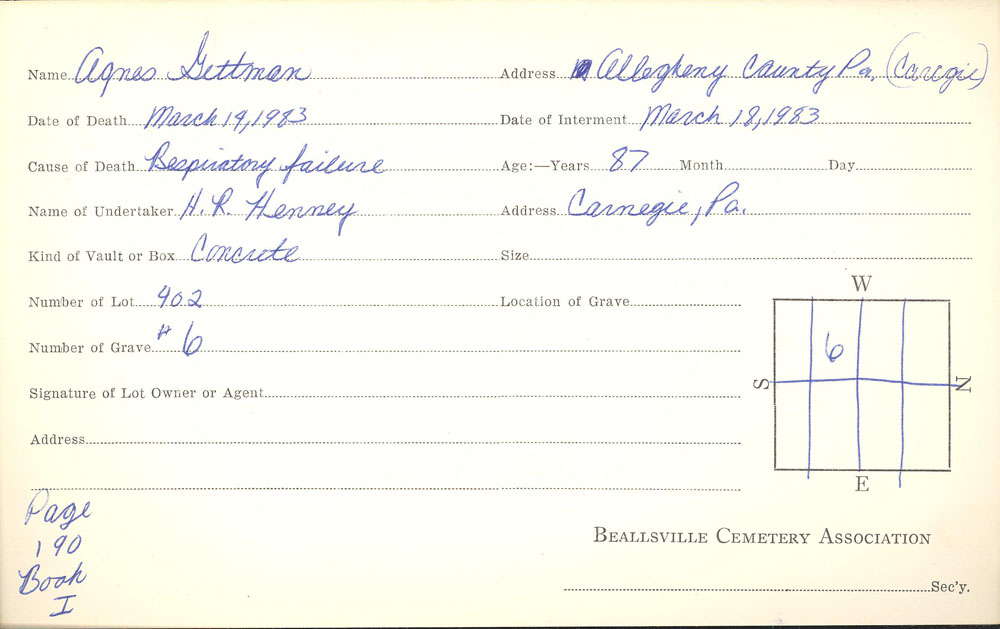 Name Agnes Gettman Address Allegheny County Pa. (Caregie)
Date of Death March 14, 1983 Date of Interment March 18, 1983
Cause of Death Respiratory failure Age:—Years 87 Month Day
Name of Undertaker H. R. Henney Address Carnegie, Pa.
Kind of Vault or Box Concrete Size
Number of Lot 402 Location of Grave
W
Number of Grave # 6
6
S N
Signature of Lot Owner or Agent
Address
E
Page
190
Book
I
BEALLSVILLE CEMETERY ASSOCIATION
Sec'y.